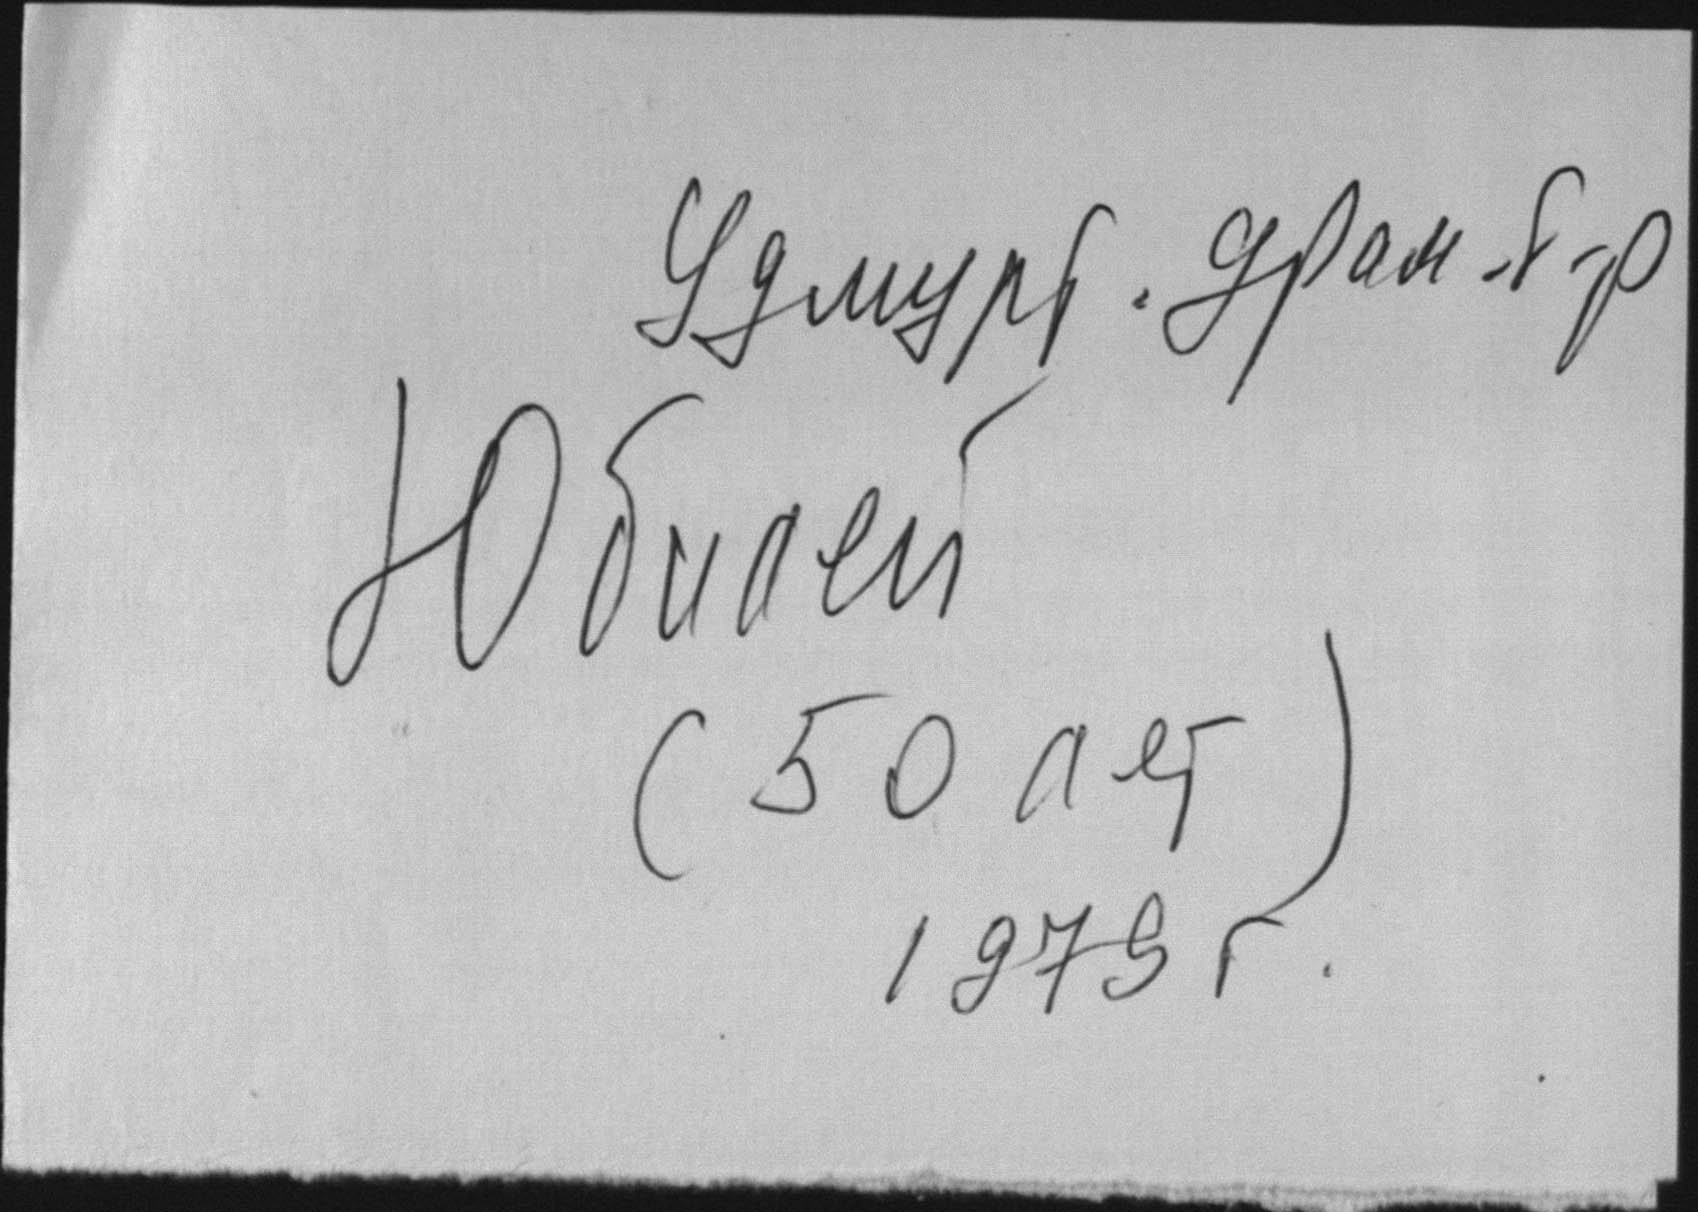 Удмурт. драм. т-р
Юбилей
(50 лет)
1979 г.